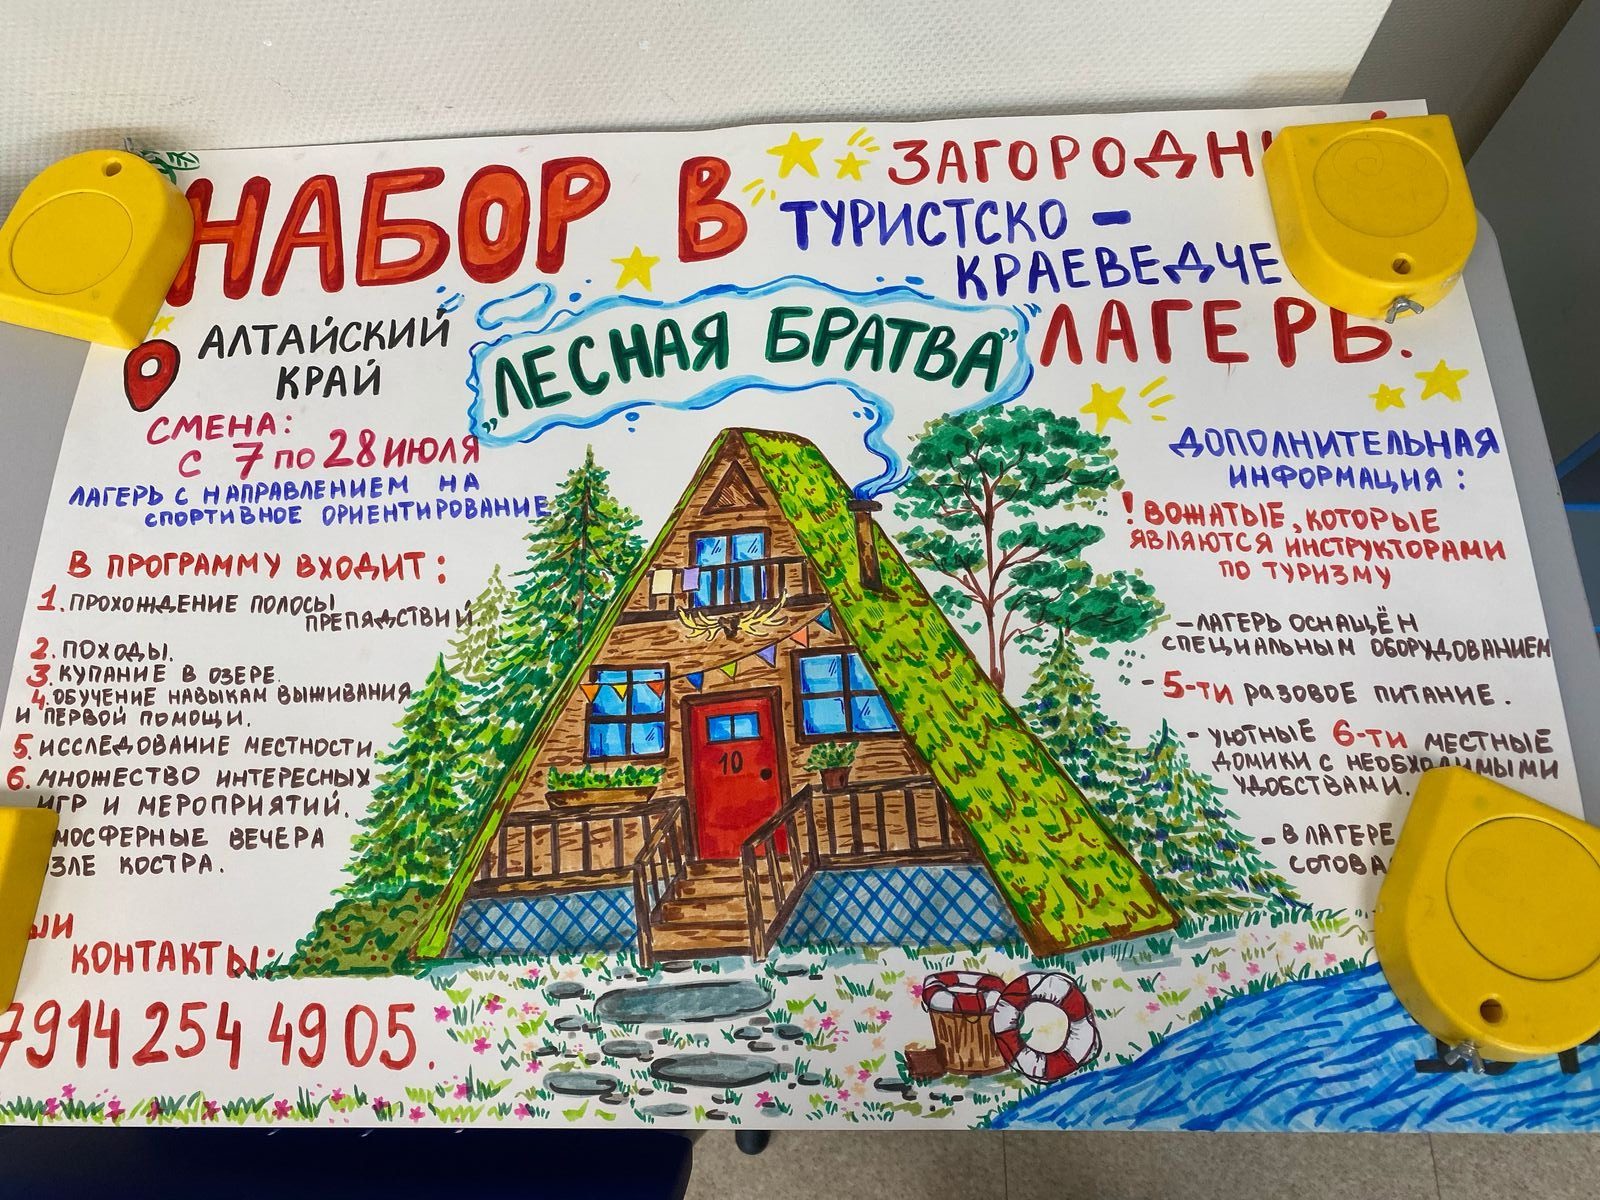 НАБОР В
ТУРИСТСКО -
ЛАГЕРЬ.
„ЛЕСНАЯ БРАТВА”
АЛТАЙСКИЙ
КРАЙ
СМЕНА:
С 7 ПО 28 ИЮЛЯ
ЛАГЕРЬ С НАПРАВЛЕНИЕМ НА
СПОРТИВНОЕ ОРИЕНТИРОВАНИЕ
В ПРОГРАММУ ВХОДИТ:
1. ПРОХОЖДЕНИЕ ПОЛОСЫ
ПРЕПЯДСТВИЙ.
2. ПОХОДЫ.
3. КУПАНИЕ В ОЗЕРЕ.
4. ОБУЧЕНИЕ НАВЫКАМ ВЫЖИВАНИЯ
И ПЕРВОЙ ПОМОЩИ.
5. ИССЛЕДОВАНИЕ МЕСТНОСТИ.
6. МНОЖЕСТВО ИНТЕРЕСНЫХ
ИГР И МЕРОПРИЯТИЙ.
ВЕЧЕРА
КОСТРА.
КОНТАКТЫ:
7914 254 49 05.
10
ДОПОЛНИТЕЛЬНАЯ
ИНФОРМАЦИЯ:
! ВОЖАТЫЕ, КОТОРЫЕ
ЯВЛЯЮТСЯ ИНСТРУКТОРАМИ
ПО ТУРИЗМУ
- ЛАГЕРЬ ОСНАЩЁН
СПЕЦИАЛЬНЫМ ОБОРУДОВАНИЕМ
- 5-ТИ РАЗОВОЕ ПИТАНИЕ.
- УЮТНЫЕ 6-ТИ МЕСТНЫЕ
ДОМИКИ С НЕОБХОДИМЫМИ
УДОБСТВАМИ.
- В ЛАГЕРЕ